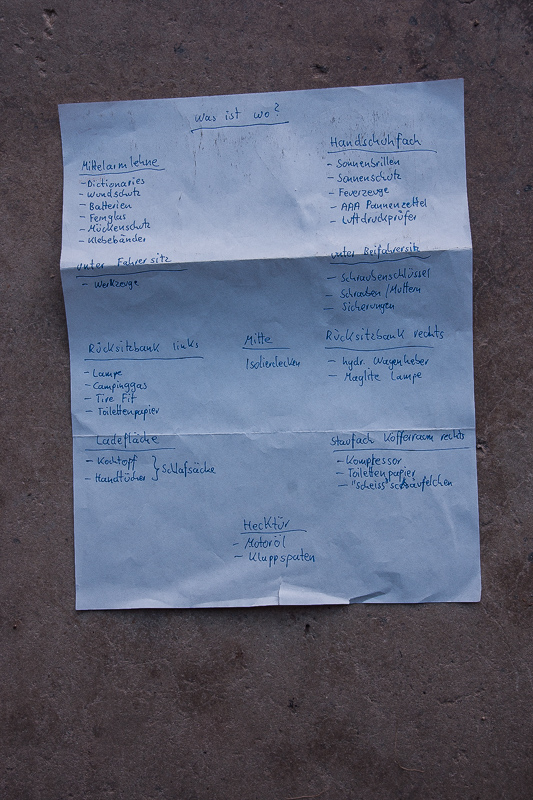 Was ist wo?
Mittelarmlehne
- Dictionaries
- Wundschutz
- Batterien
- Fernglas
- Mückenschutz
- Klebebänder
Handschuhfach
- Sonnenbrillen
- Sonnenschutz
- Feuerzeuge
- AAA Pannenzettel
- Luftdruckprüfer
unter Fahrersitz
- Werkzeuge
unter Beifahrersitz
- Schraubenschlüssel
- Schrauben / Muttern
- Sicherungen
Rücksitzbank links
- Lampe
- Campinggas
- Tire Fit
- Toilettenpapier
Mitte
Isolierdecken
Rücksitzbank rechts
- hydr. Wagenheber
- Maglite Lampe
Ladefläche
- Kochtopf
- Handtücher } Schlafsäcke
Staufach Kofferraum rechts
- Kompressor
- Toilettenpapier
- "Scheiss"schäufelchen
Hecktür
- Motoröl
- Klappspaten